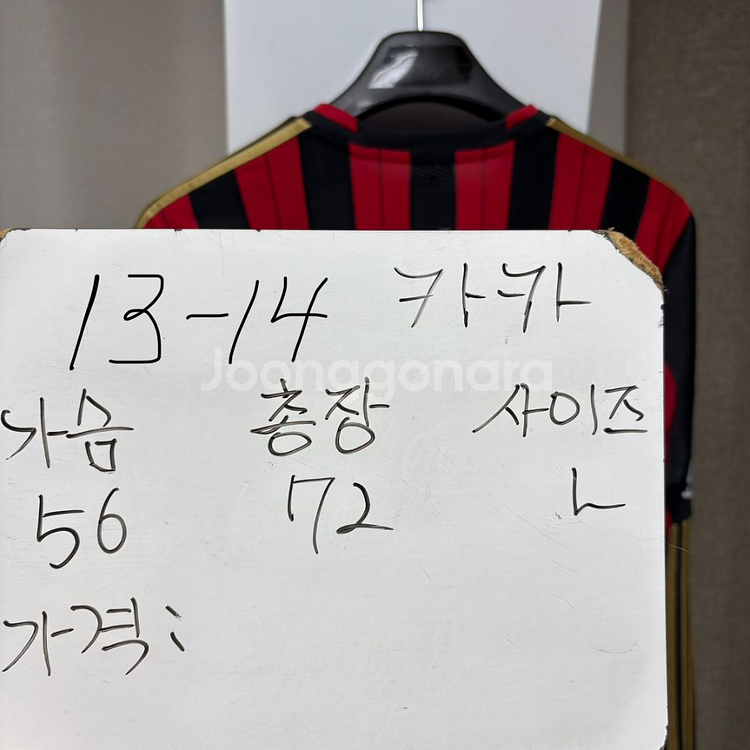 13-14 카카
Joonggonara
가슴 총장 사이즈
56 72 L
가격: